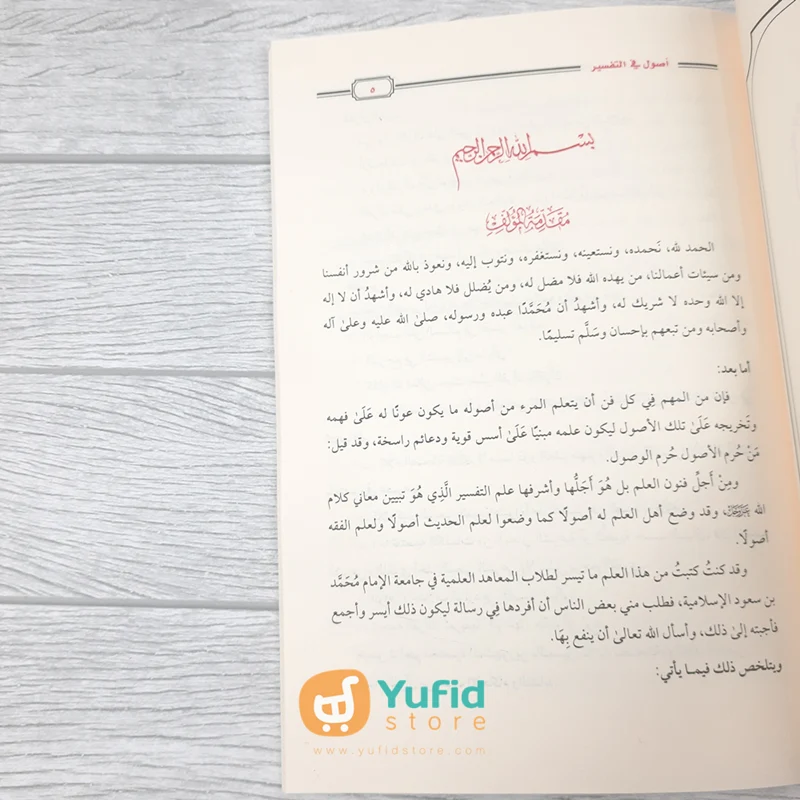 أصول في التفسير
٥
بسم الله الرحمن الرحيم
مُقَدِّمَةُ المُؤَلِّفِ
الحمد لله، نَحمده، ونستعينه، ونستغفره، ونتوب إليه، ونعوذ بالله من شرور أنفسنا
ومن سيئات أعمالنا، من يهده الله فلا مضل له، ومن يُضلل فلا هادي له، وأشهدُ أن لا إله
إلا الله وحده لا شريك له، وأشهدُ أن مُحَمَّدًا عبده ورسوله، صلىٰ الله عليه وعلىٰ آله
وأصحابه ومن تبعهم بإحسان وسَلَّم تسليمًا.
أما بعد:
فإن من المهم فِي كل فن أن يتعلم المرء من أصوله ما يكون عونًا له عَلَىٰ فهمه
وتَخريجه عَلَىٰ تلك الأصول ليكون علمه مبنيًّا عَلَىٰ أسس قوية ودعائم راسخة، وقد قيل:
مَنْ حُرم الأصول حُرم الوصول.
ومِنْ أَجلِّ فنون العلم بل هُوَ أَجَلُّها وأشرفها علم التفسير الَّذِي هُوَ تبيين معاني كلام
الله ، وقد وضع أهل العلم له أصولًا كما وضعوا لعلم الحديث أصولًا ولعلم الفقه
أصولًا.
وقد كنتُ كتبتُ من هذا العلم ما تيسر لطلاب المعاهد العلمية في جامعة الإمام مُحَمَّد
بن سعود الإسلامية، فطلب مني بعض الناس أن أفردها فِي رسالة ليكون ذلك أيسر وأجمع
فأجبته إلىٰ ذلك، وأسأل الله تعالىٰ أن ينفع بِهَا.
ويتلخص ذلك فيمـا يأتي:
Yufid
store
www.yufidstore.com